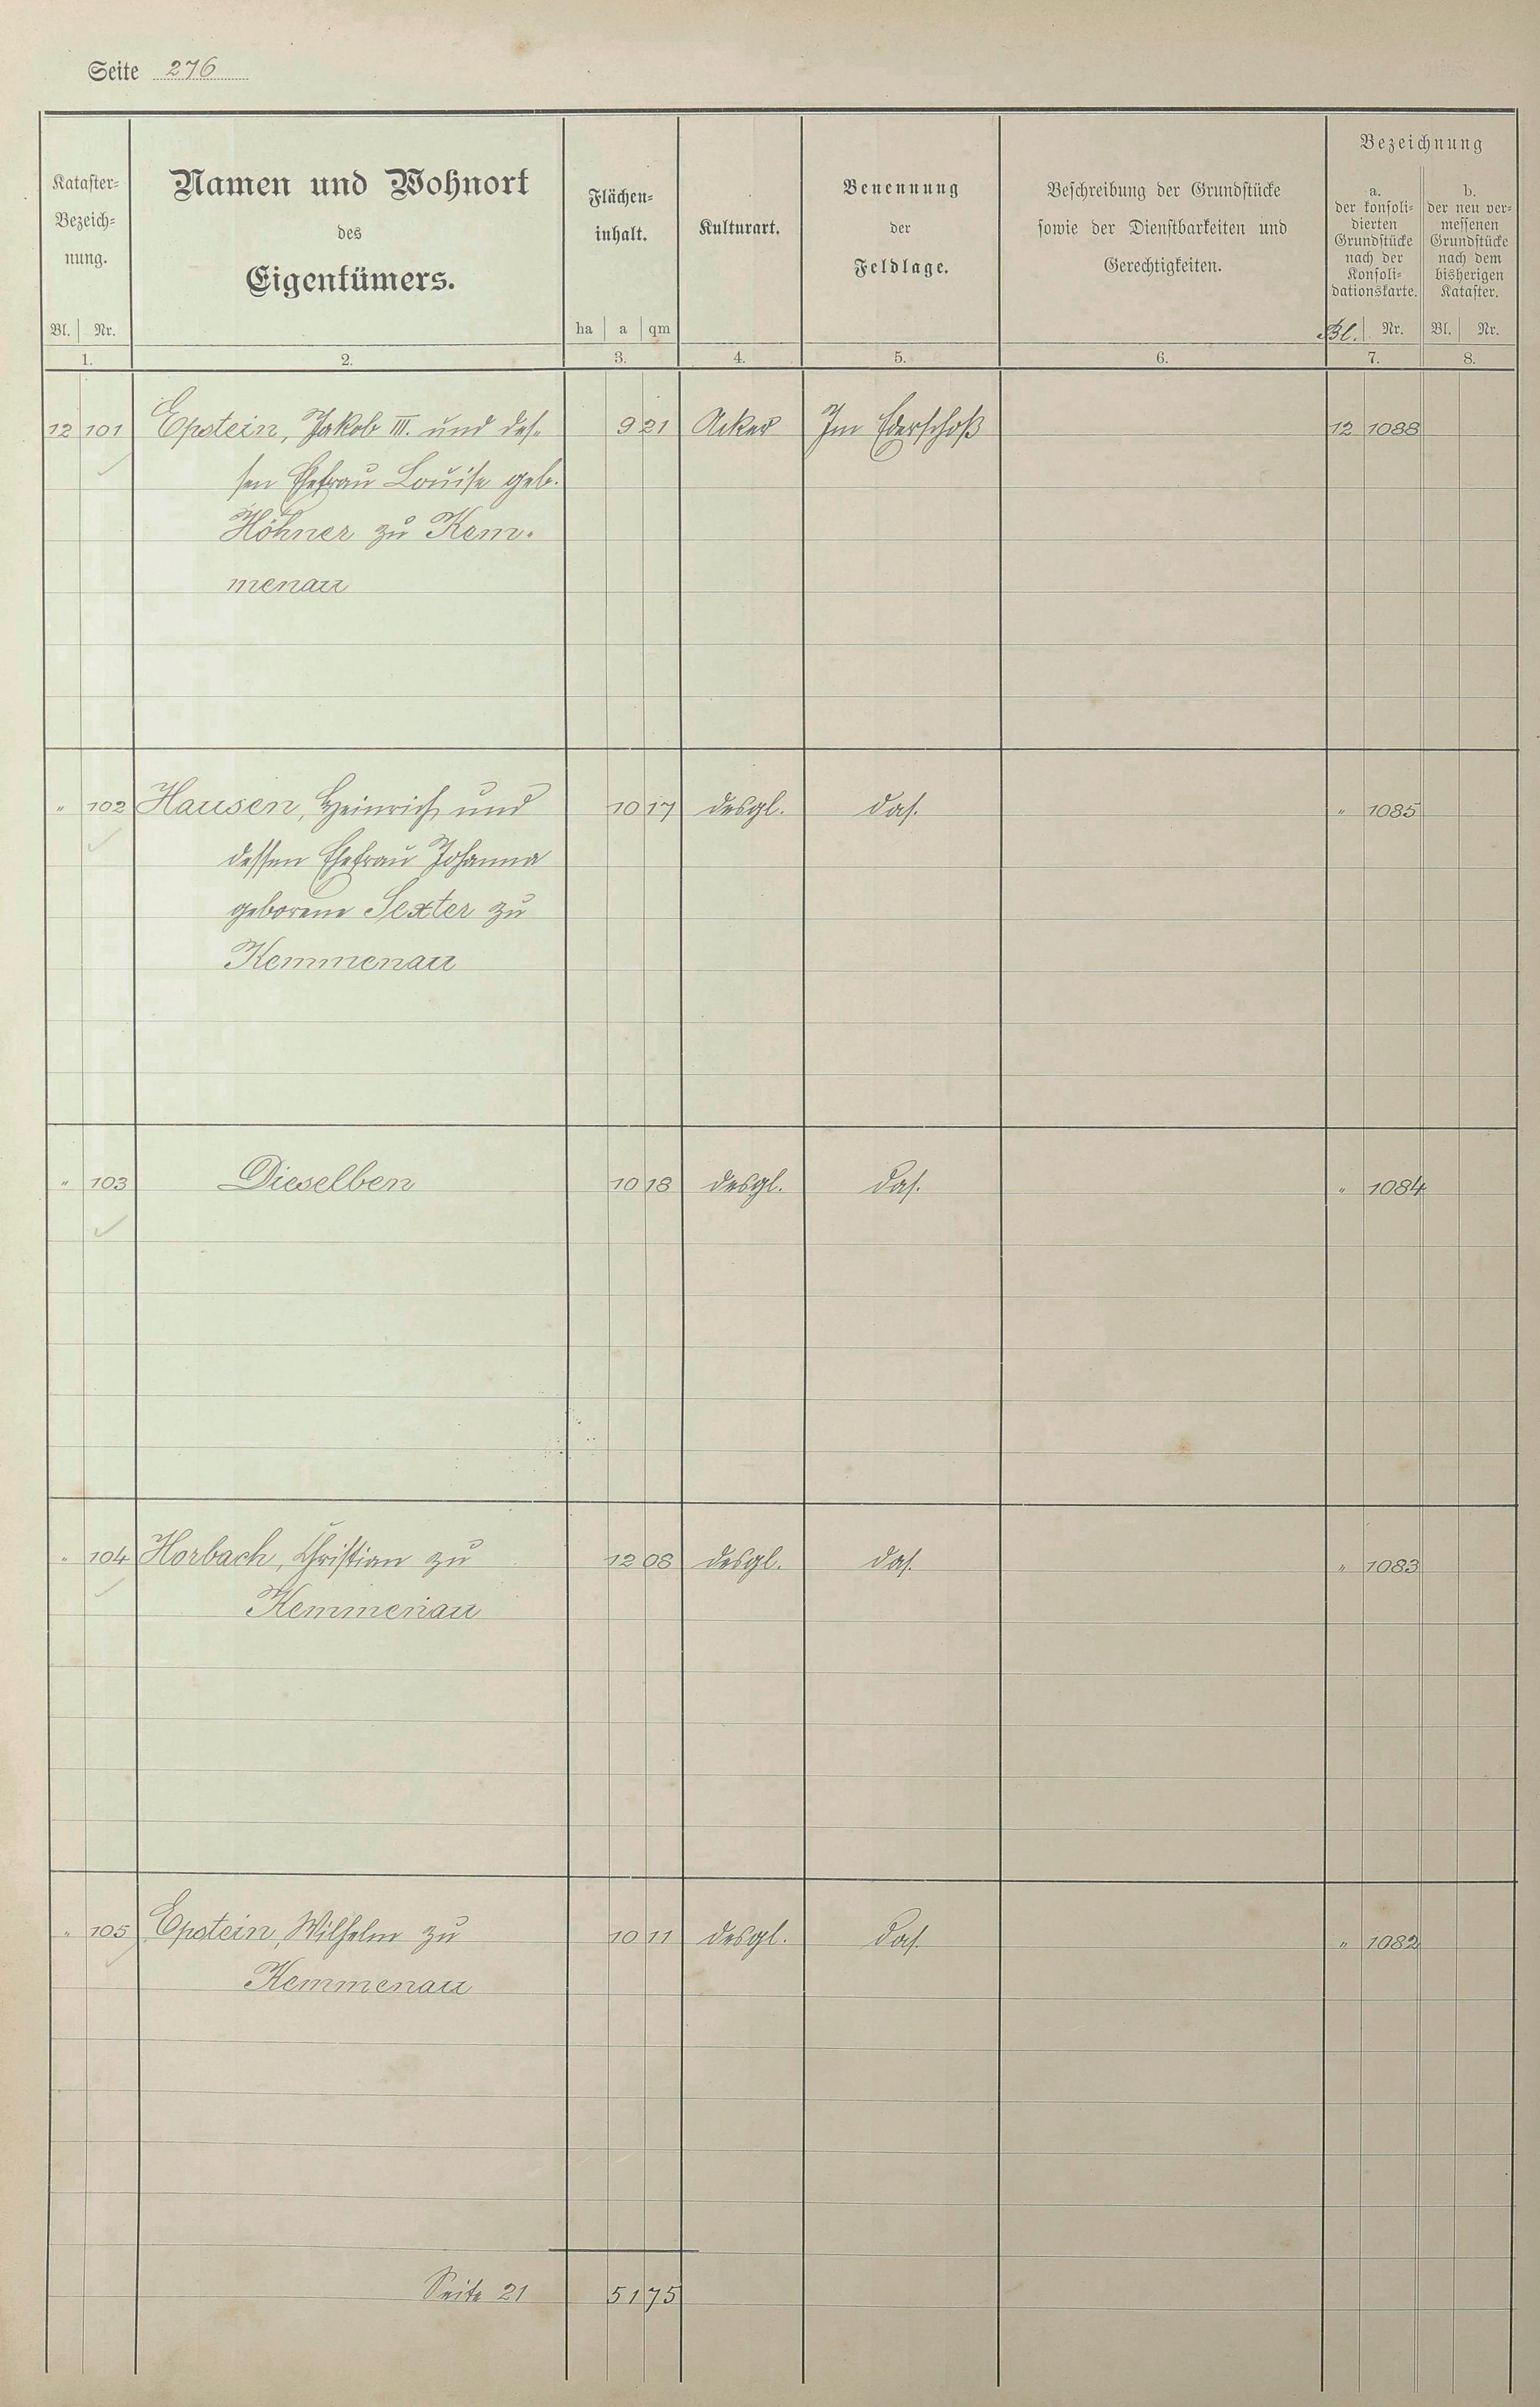 Seite 276
Kataster-
Bezeich-
nung.
Bl. Nr.
1.
Namen und Wohnort
des
Eigentümers.
2.
Flächen-
inhalt.
ha a qm
3.
Kulturart.
4.
Benennung
der
Feldlage.
5.
Beschreibung der Grundstücke
sowie der Dienstbarkeiten und
Gerechtigkeiten.
6.
Bezeichnung
a.
der konsoli-
dierten
Grundstücke
nach der
Konsoli-
dationskarte.
Bl. Nr.
7.
b.
der neu ver-
messenen
Grundstücke
nach dem
bisherigen
Kataster.
Bl. Nr.
8.
12 101 Epstein, Jakob III. und des- 9 21 Acker Im Ederschoß 12 1088
sen Ehefrau Louise geb.
Höhner zu Kem-
menau
" 102 Hausen, Heinrich und 10 17 desgl. das. " 1085
dessen Ehefrau Johanna
geborene Sexter zu
Kemmenau
" 103 Dieselben 10 18 desgl. das. " 1084
" 104 Horbach, Christian zu 12 08 desgl. das. " 1083
Kemmenau
" 105 Epstein, Wilhelm zu 10 11 desgl. das. " 1082
Kemmenau
Seite 21 51 75